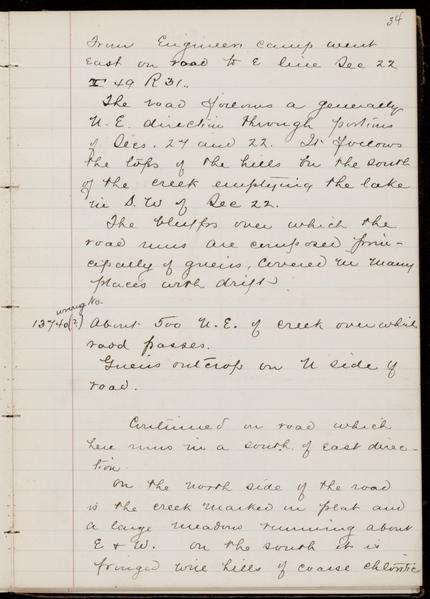 34
From Engineers camp went
East on road to E line Sec 22
T 49 R 31.
The road follows a generally
N.E. direction through portions
of Secs. 27 and 22. It follows
the tops of the hills to the south
of the creek emptying the lake
in S.W of Sec 22.
The bluffs over which the
road runs are composed prin-
cipally of gneiss, covered in many
places with drift.
wrong No.
13740(?) About 500 N.E. of creek over which
road passes.
Gneiss outcrop on N side of
road.
Continued on road which
here runs in a south of east direc-
tion.
On the north side of the road
is the creek marked in plat and
a large meadow running about
E + W. On the south it is
fringed with hills of coarse chloritic